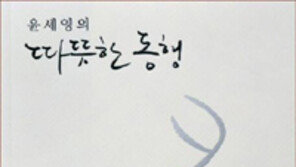 윤세영의
따뜻한 동행